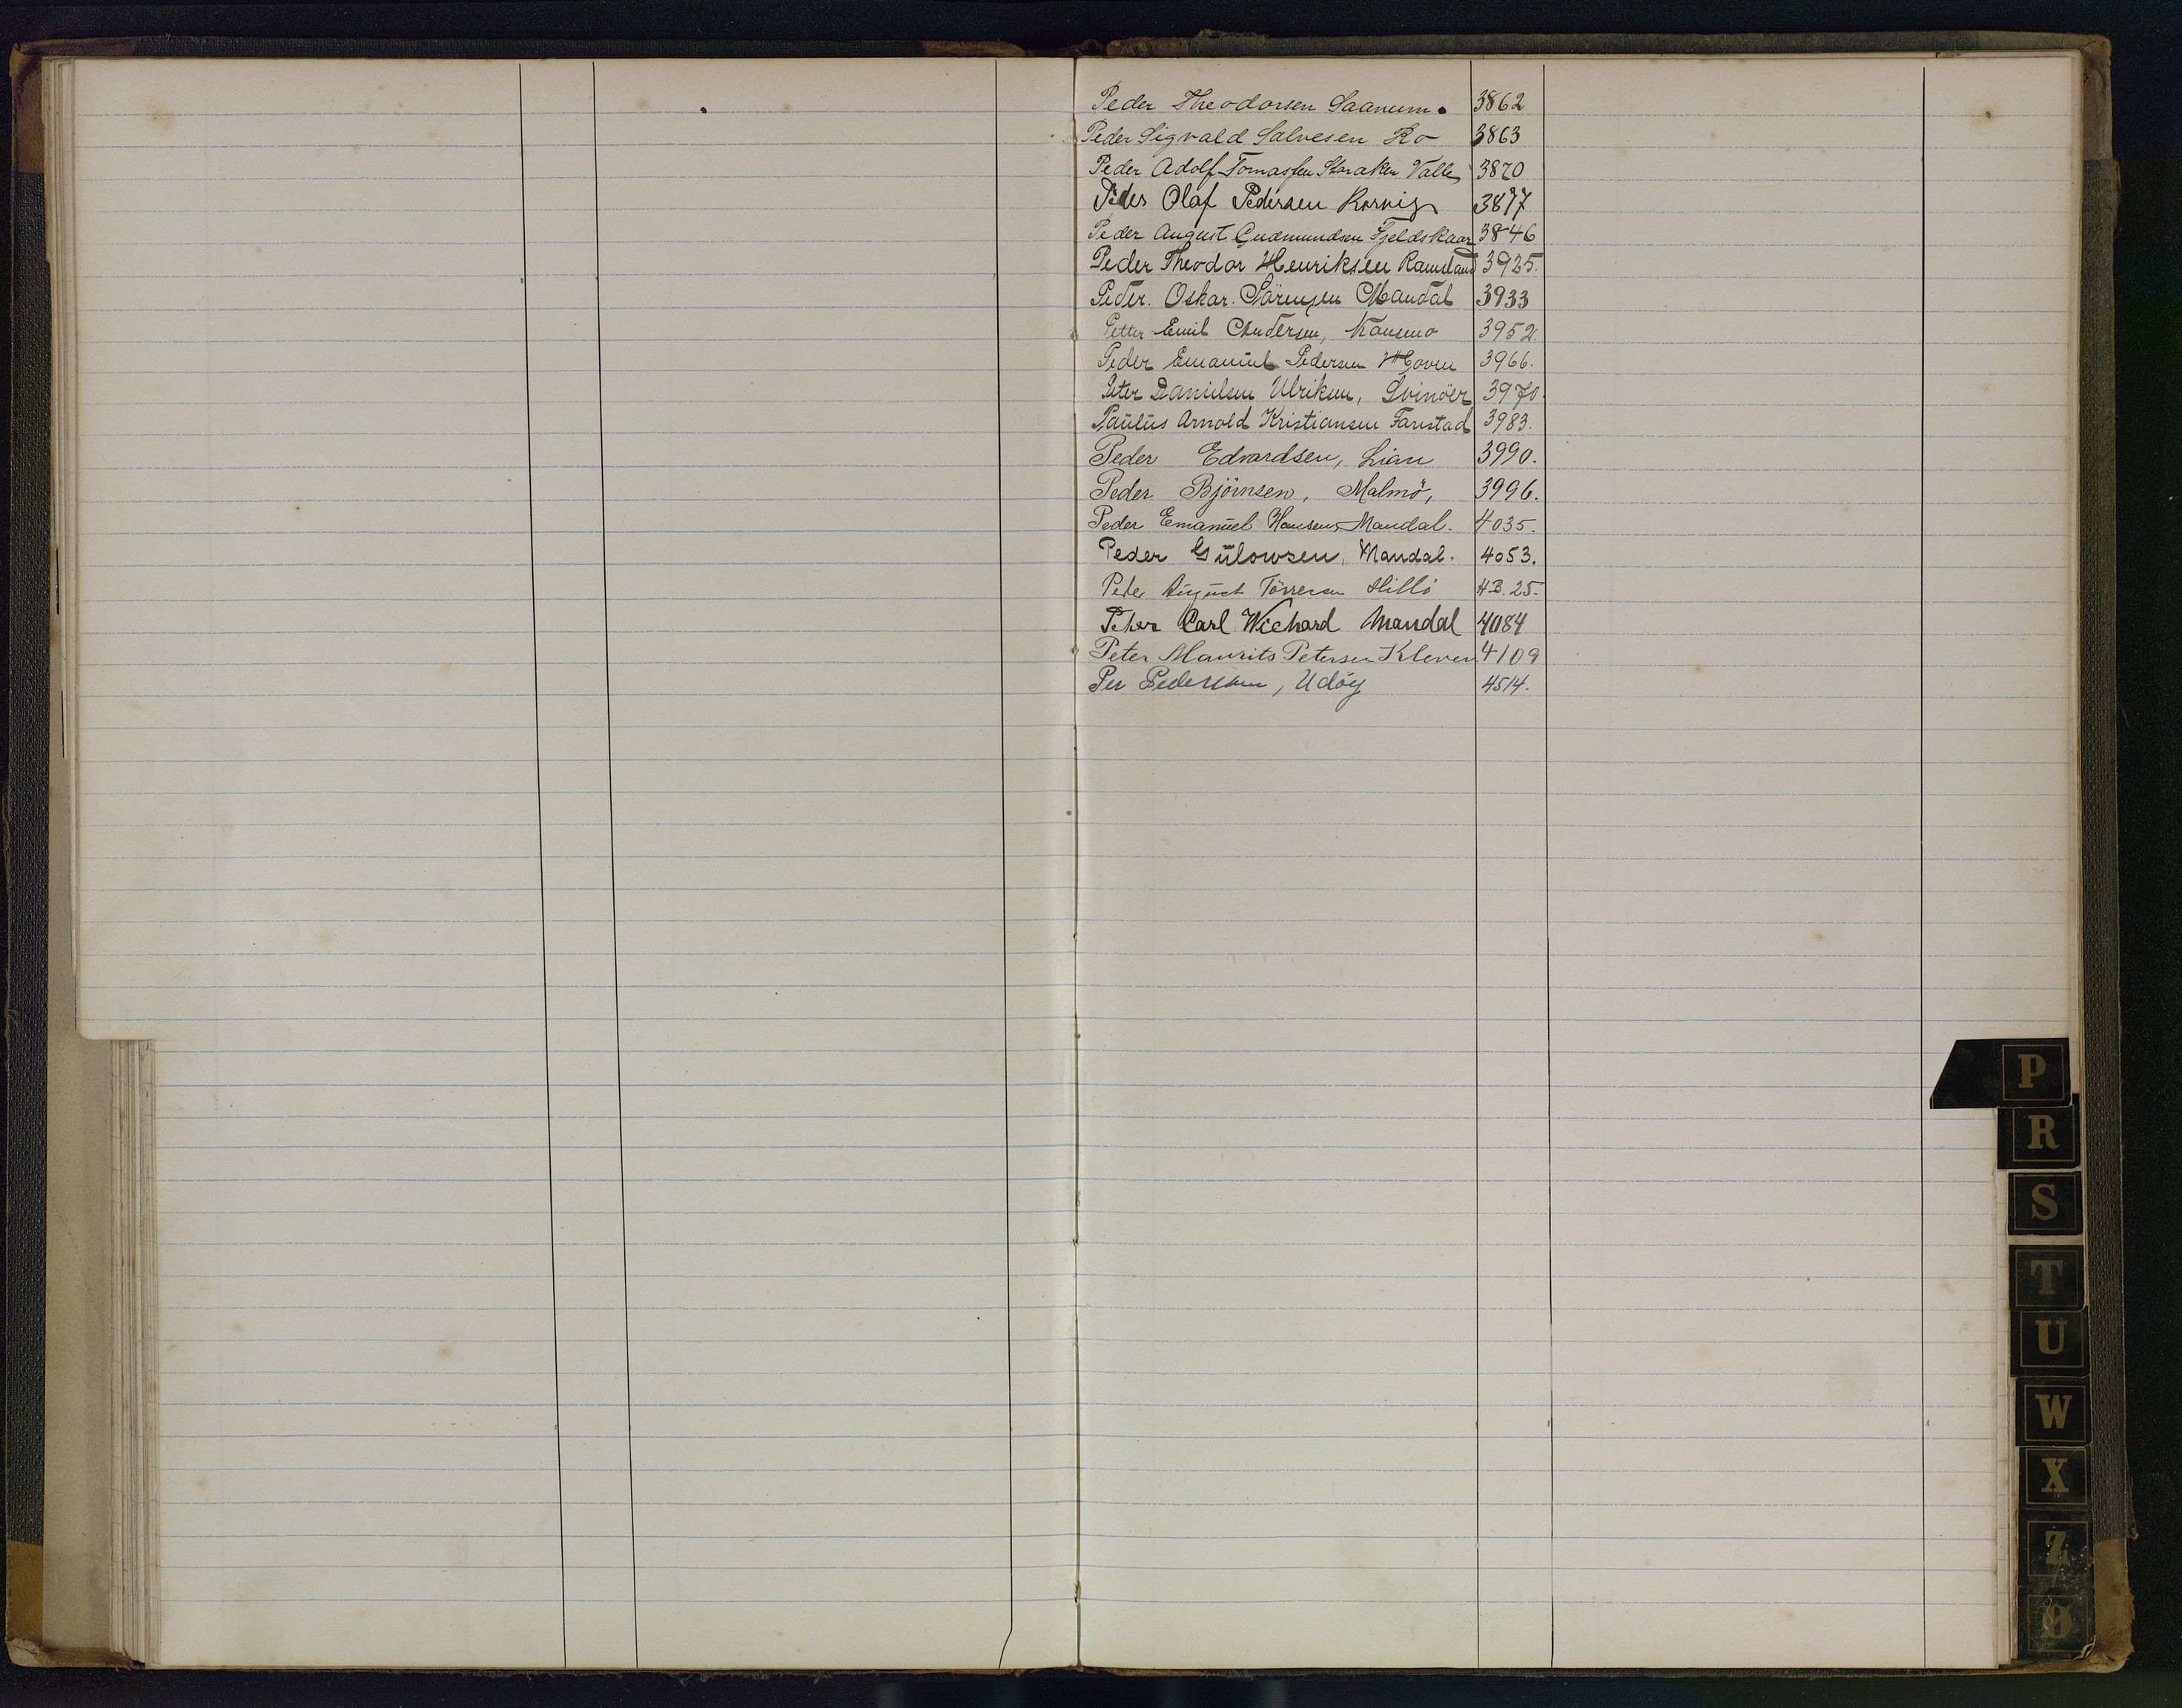 Peder Theodorsen Saanum. 3862
Peder Sigvald Salvesen Ro 3863
Peder Adolf Tomassen Staraker Valle 3870
Peder Olaf Pedersen Rosvig 3877
Peder August Gudmundsen Fjeldskaar 3846
Peder Theodor Henriksen Ramsland 3925.
Peder. Oskar. Sörensen Mandal 3933
Petter Emil Andersen, Konsmo 3952.
Peder Emanuel Pedersen Hoven 3966.
Peter Danielsen Ulriksen, Svinöer 3970.
Paulus Arnold Kristiansen Farestad 3983.
Peder Edvardsen, Lian 3990.
Peder Björnsen, Malmö, 3996.
Peder Emanuel Hansen, Mandal. 4035.
Peder Gulowsen, Mandal. 4053.
Peder August Törresen Hillö HB. 25.
Peter Carl Wichard Mandal 4084
Peter Maurits Petersen Kleven 4109
Per Pedersen, Udöy 4514.
P
R
S
T
U
W
X
Z
Ø